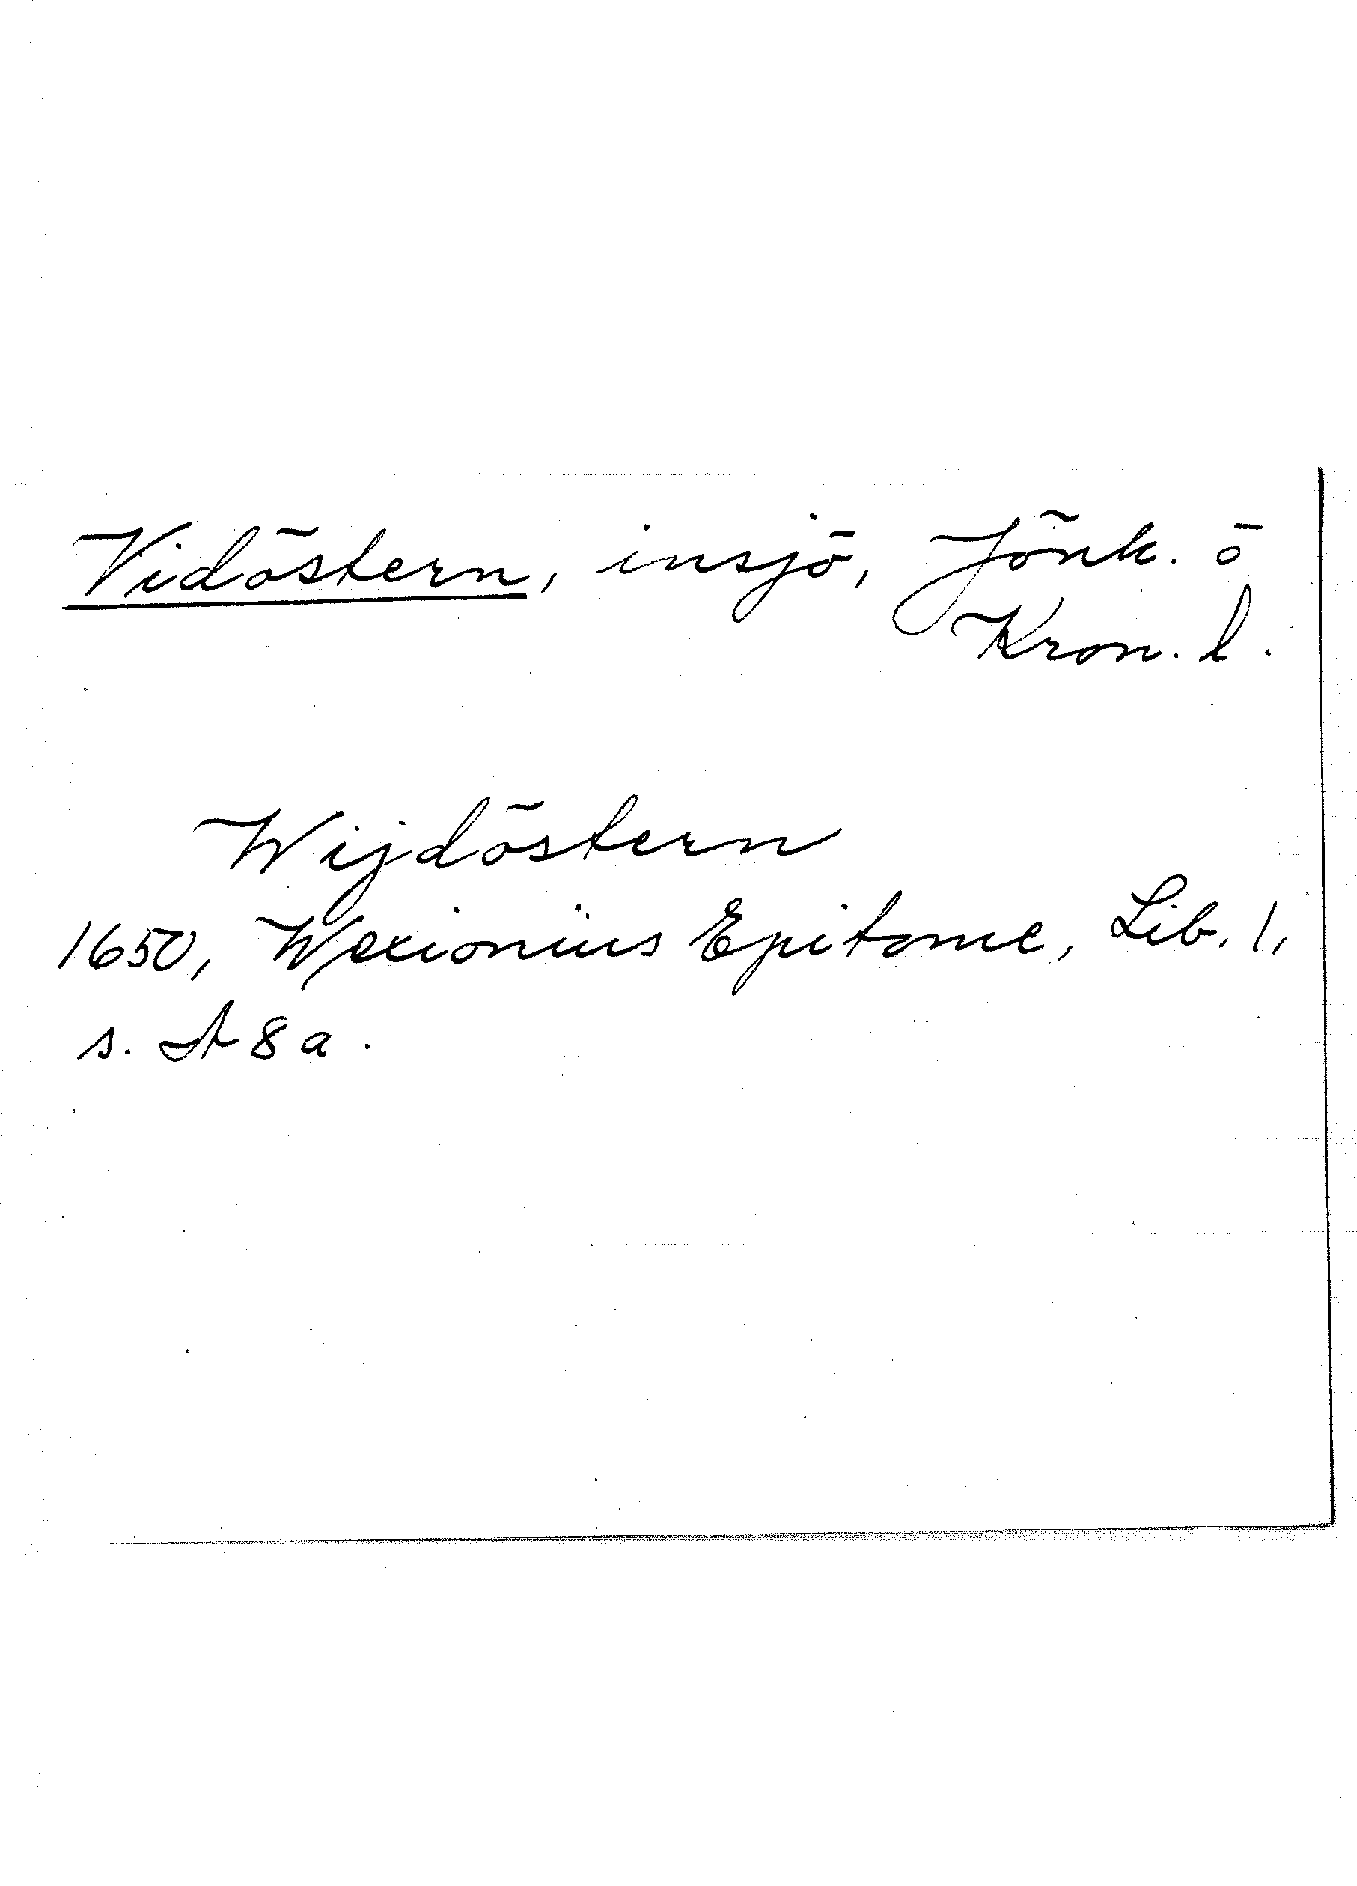 Vidöstern, insjö, Jönk. o
Kron. l.
Wijdöstern
1650, Wexionius Epitome, Lib. 1,
s. A 8 a.